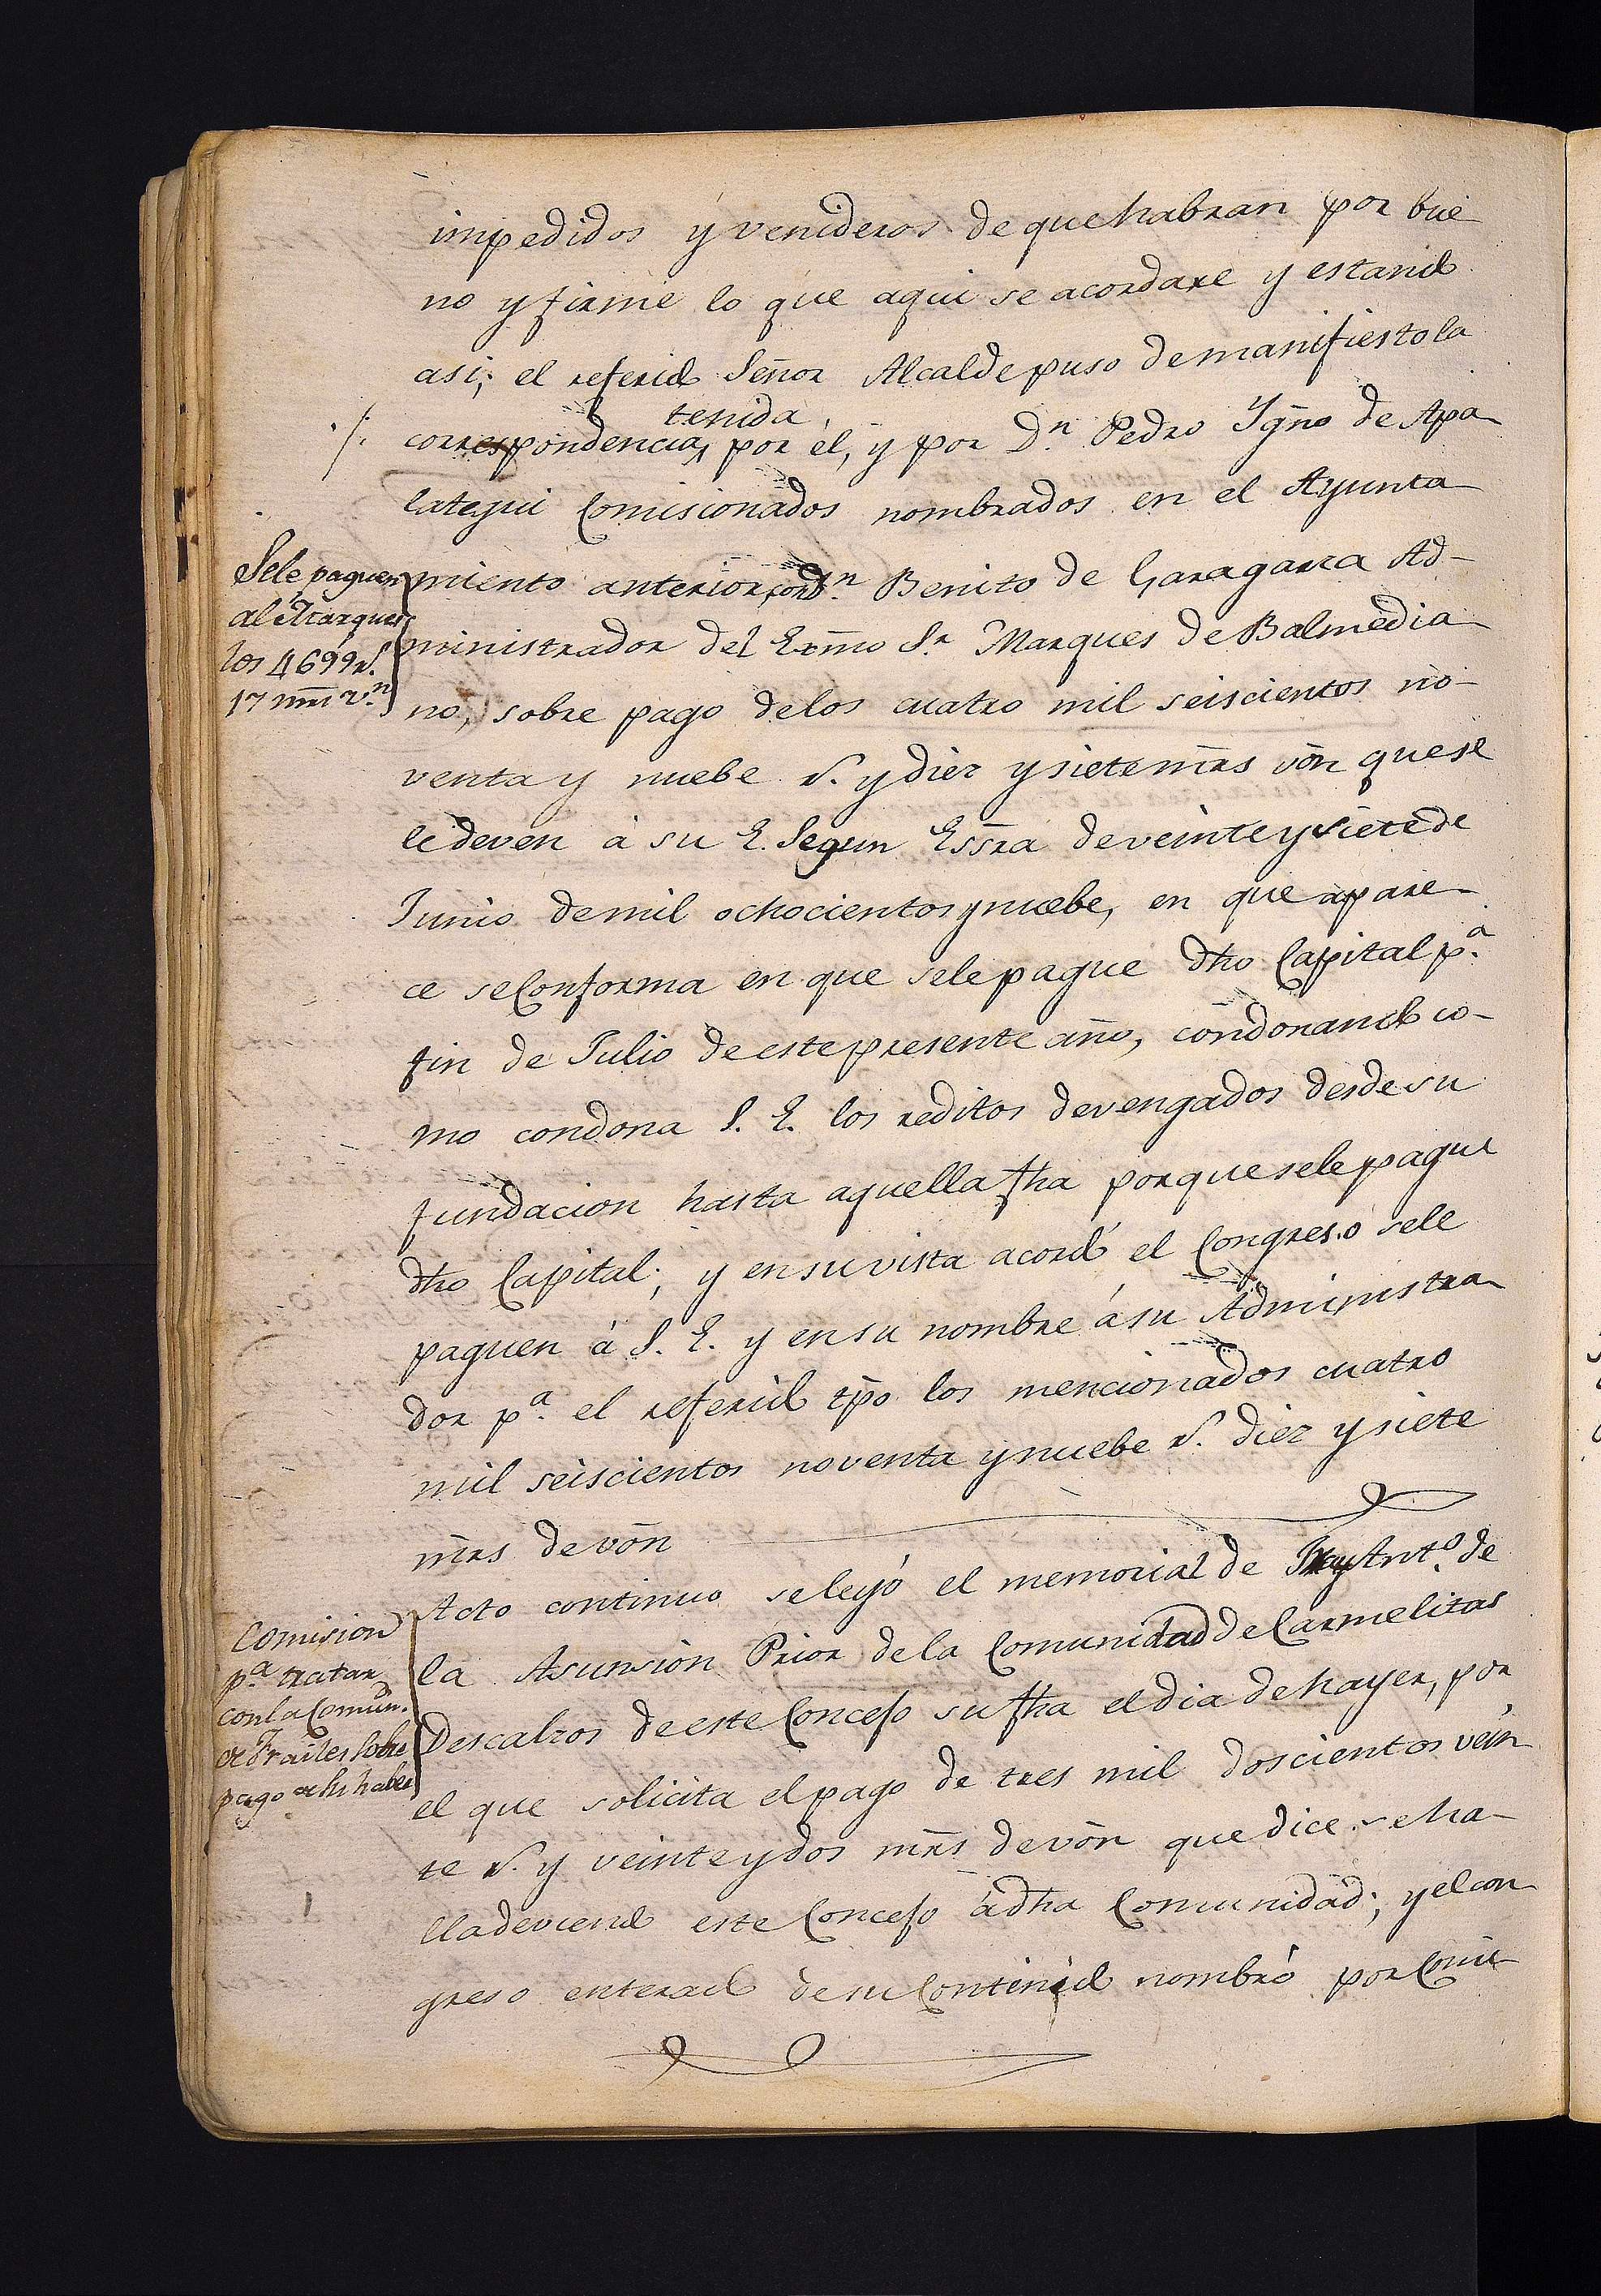 impedidos y venideros de que habran por bue
no y firme lo que aqui se acordare y estando
asi; el referido Señor Alcalde puso de manifiesto la
tenida
./. correspondencia, por él, y por Dn. Pedro Ygño de Apa
lategui Comisionados nombrados en el Ayunta
miento anterior, con Dn. Benito de Garagarza Ad-
ministrador del Exmo Sr. Marques de Balmedia
no, sobre pago de los cuatro mil seiscientos no-
venta y nuebe rs. y diez y siete mrs von que se
le deven à su E. Segun Essra de veinte y siete de
Junio de mil ochocientos y nuebe, en que apare
ce se Conforma en que se le pague dho Capital pa.
fin de Julio de este presente año, condonando co-
mo condona S. E. los reditos devengados desde su
fundacion hasta aquella fha porque se le pague
dho Capital; y en su vista acordó el Congreso se le
paguen à S. E. y en su nombre á su Administra
dor pa. el referido tpo los mencionados cuatro
mil seiscientos noventa y nuebe rs. diez y siete
mrs de von
Acto continuo se leyó el memorial de Fray Anto. de
la Asunsion Prior de la Comunidad de Carmelitas
Descalzos de este Concejo su fha el dia de hayer, por
el que solicita el pago de tres mil doscientos vein
te rs. y veinte y dos mrs de von que dice se ha-
lla deviendo este Concejo à dha Comunidad; y el con
greso enterado de su Contenido nombró por Comi
Se le paguen
al Marques
los 4699 rs.
17 mrs vn.
Comision
pa. tratar
con la Comun.
de Frailes sobre
pago de su haber